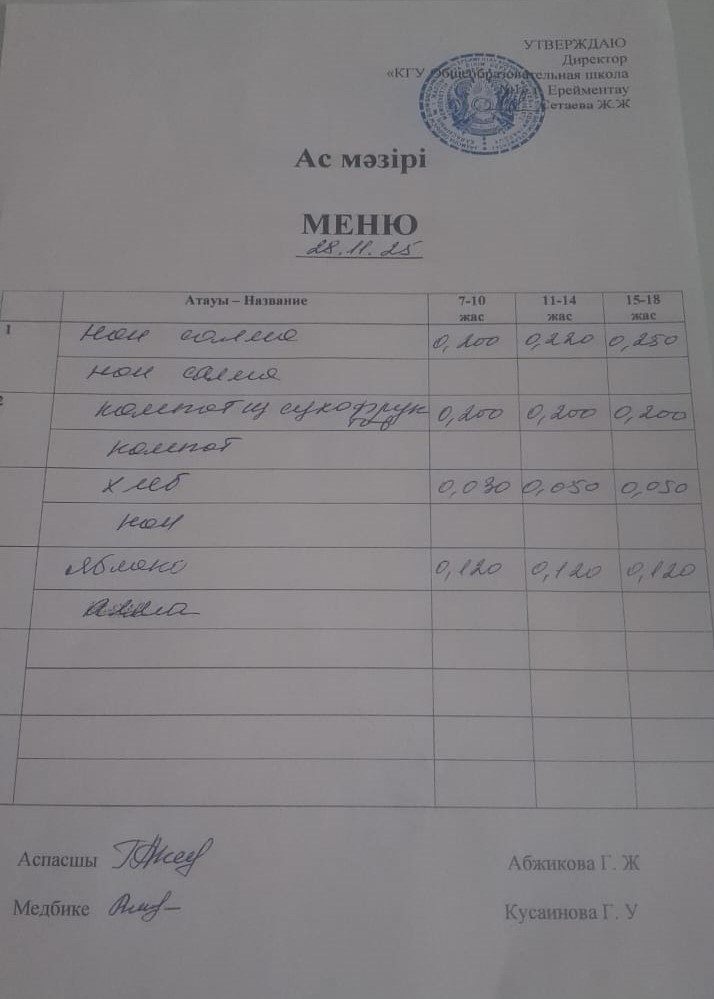 УТВЕРЖДАЮ
Директор
«КГУ Общеобразовательная школа
г. Ерейментау
Сетаева Ж.Ж
Ас мәзірі
МЕНЮ
28.11.25
Атауы – Название 7-10 жас 11-14 жас 15-18 жас
1 нан салма 0,200 0,220 0,250
нан салма
2 компот из сухофруктов 0,200 0,200 0,200
компот
хлеб 0,030 0,050 0,050
нан
яблоко 0,120 0,120 0,120
алма
Аспасшы Абжикова Г. Ж
Медбике Кусаинова Г. У